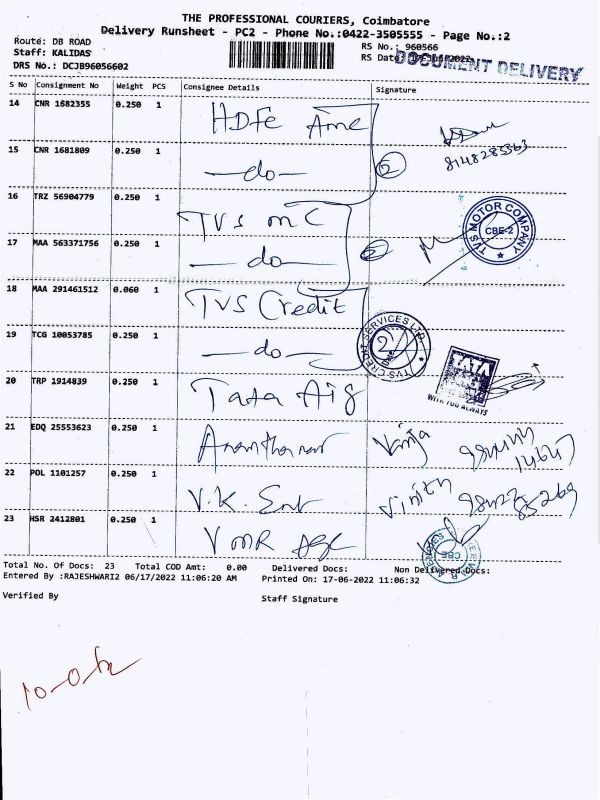 THE PROFESSIONAL COURIERS, Coimbatore
Delivery Runsheet - PC2 - Phone No.:0422-3505555 - Page No.:2
Route: DB ROAD
RS No.: 960566
Staff: KALIDAS
RS Date
DOCUMENT DELIVERY
DRS No.: DCJB96056602
S No Consignment No Weight PCS Consignee Details Signature
14 CNR 1682355 0.250 1 HDFC
15 CNR 1681809 0.250 1 —do— 2
8148285363
16 TRZ 56904779 0.250 1 TVS MC
TVS MOTOR COMPANY CBE-2
17 MAA 563371756 0.250 1 —do— 2
18 MAA 291461512 0.060 1 TVS Credit
TVS CREDIT SERVICES LTD
19 TCG 10053785 0.250 1 —do—
TATA
WITH YOU ALWAYS
20 TRP 1914839 0.250 1 Tata Aig
21 EDQ 25553623 0.250 1
22 POL 1101257 0.250 1 V.K. Ent Vinith
23 HSR 2412801 0.250 1 VMR Age
AGENCIES CBE
Total No. Of Docs: 23 Total COD Amt: 0.00 Delivered Docs: Non Delivered Docs:
Entered By :RAJESHWARI2 06/17/2022 11:06:20 AM Printed On: 17-06-2022 11:06:32
Verified By Staff Signature